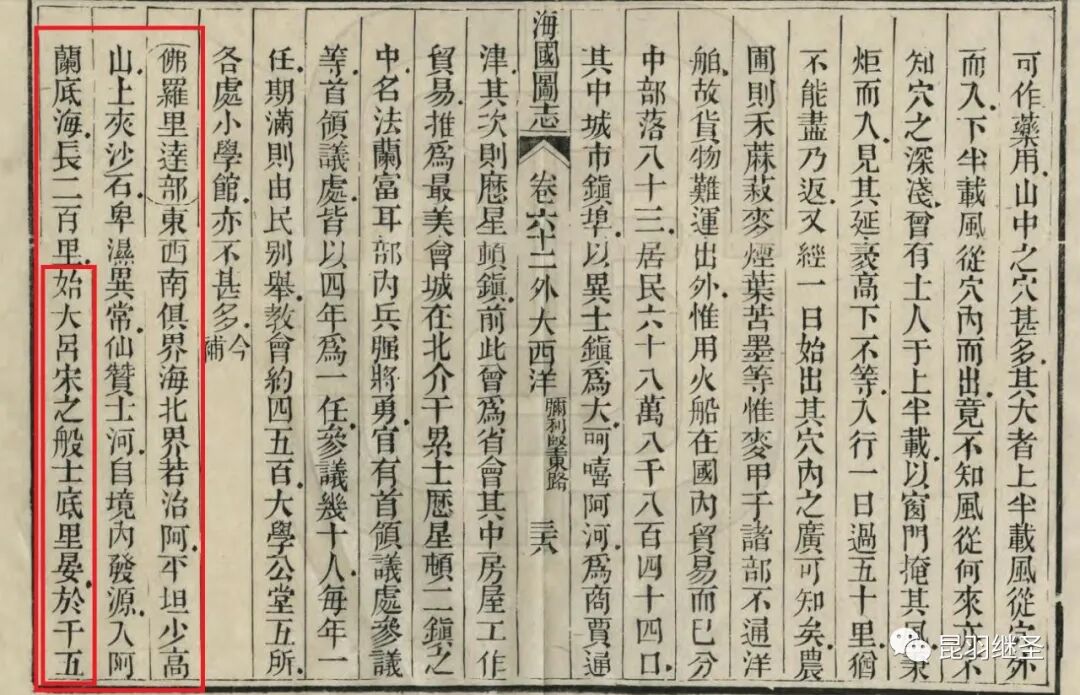 可作藥用山中之穴甚多其大者上半載風從穴外
而入下半載風從穴內而出竟不知風從何來亦不
知穴之深淺曾有土人于上半載以窗門掩其風秉
炬而入見其延袤高下不等入行一日過五十里猶
不能盡乃返又經一日始出其穴內之廣可知矣農
圃則禾蔴菽麥煙葉苦墨等惟麥甲于諸部不通洋
舶故貨物難運出外惟用火船在國內貿易而已分
中部落八十三居民六十八萬八千八百四十四口
其中城市鎮埠以異士鎮爲大呵嘻阿河爲商賈通
海國圖志 卷六十二外大西洋 彌利堅東路 三六
津其次則歷星頓鎮前此曾爲省會其中房屋工作
貿易推爲最美會城在北介于累士歷星頓二鎮之
中名法蘭富耳部內兵强將勇官有首領議處參議
等首領議處皆以四年爲一任參議幾十人每年一
任期滿則由民別舉教會約四五百大學公堂五所
各處小學館亦不甚多今補
佛羅里達部東西南俱界海北界若治阿平坦少高
山上夾沙石卑濕異常仙贊士河自境內發源入阿
蘭底海長二百里始大呂宋之般士底里晏於千五
昆羽继圣